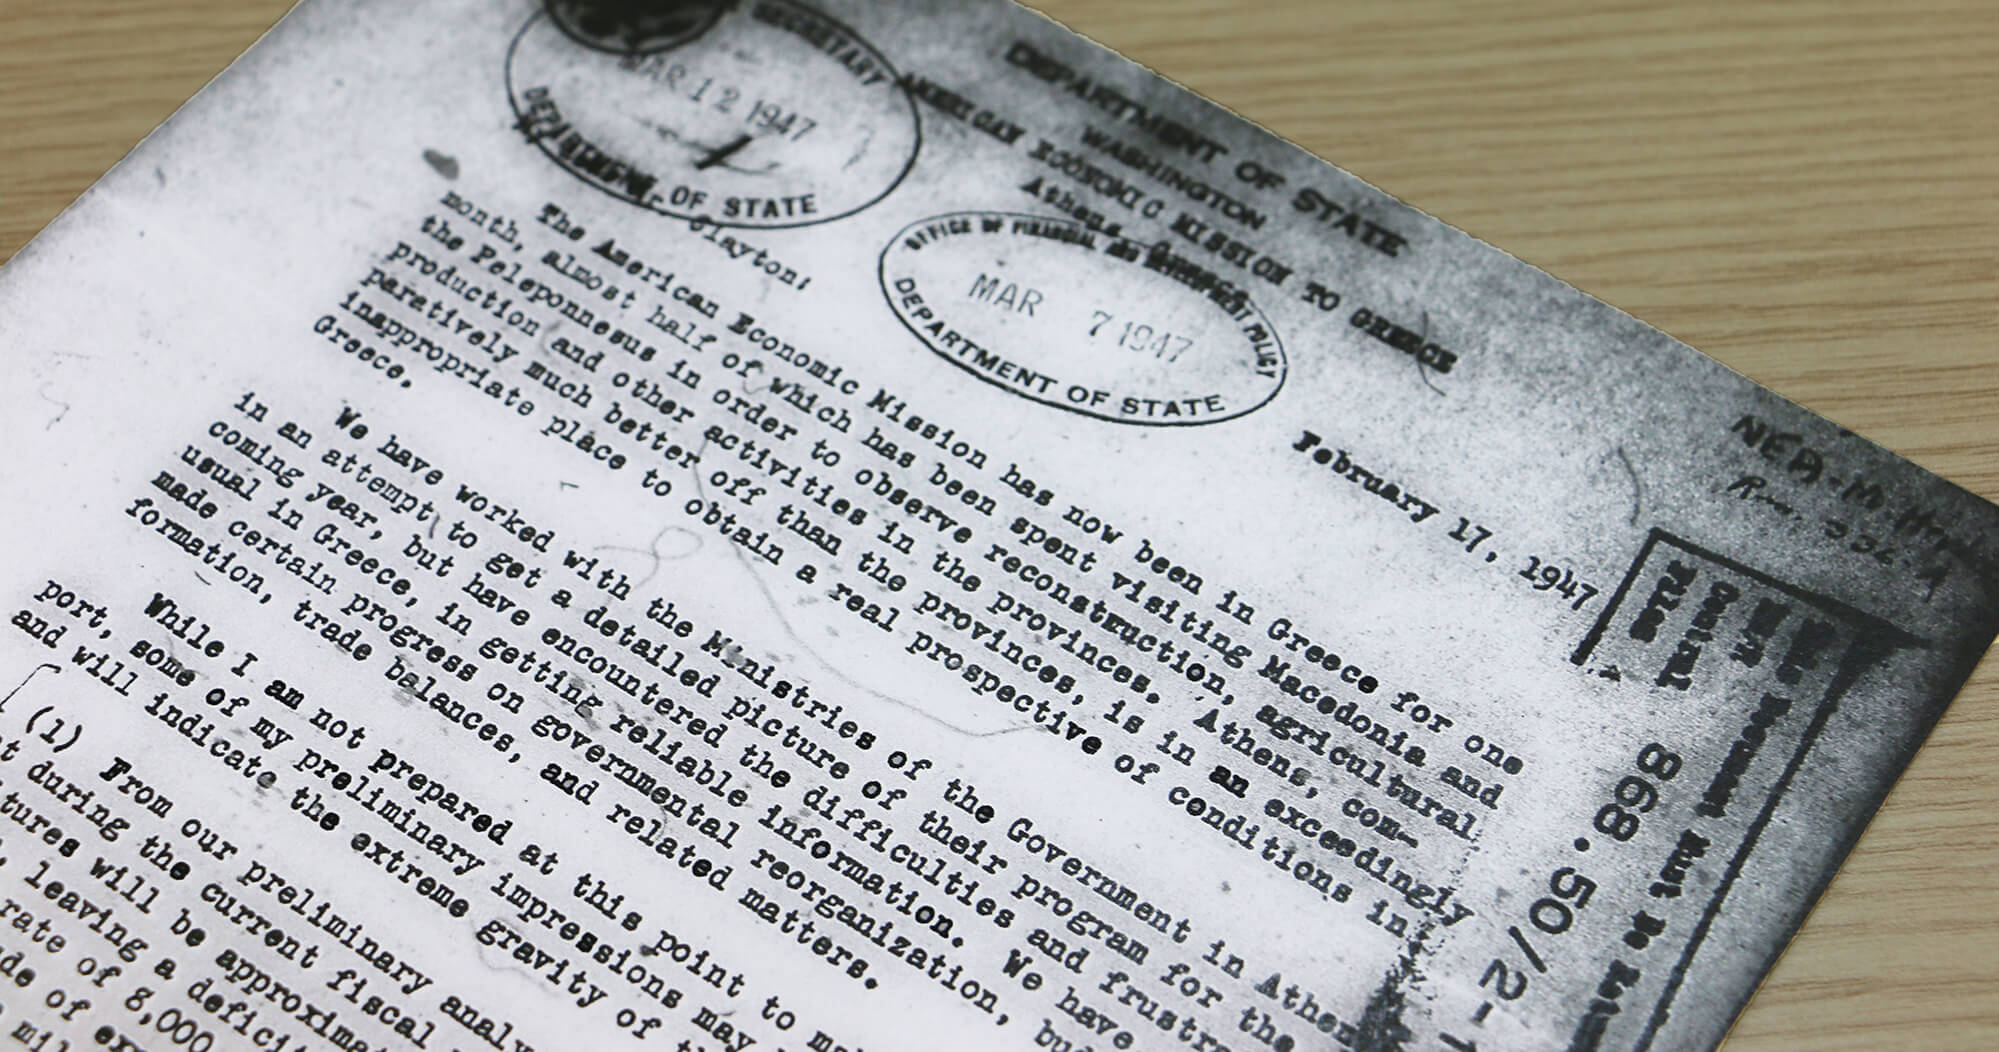 SECRETARY
MAR 12 1947
DEPARTMENT OF STATE
DEPARTMENT OF STATE
WASHINGTON
AMERICAN ECONOMIC MISSION TO GREECE
Athens, Greece
OFFICE OF FINANCIAL AND DEVELOPMENT POLICY
MAR 7 1947
DEPARTMENT OF STATE
February 17, 1947
NEA-
868.50/2-1
Mr. Clayton:
The American Economic Mission has now been in Greece for one
month, almost half of which has been spent visiting Macedonia and
the Peleponnesus in order to observe reconstruction, agricultural
production and other activities in the provinces. Athens, com-
paratively much better off than the provinces, is in an exceedingly
inappropriate place to obtain a real prospective of conditions in
Greece.
We have worked with the Ministries of the Government in Athens
in an attempt to get a detailed picture of their program for the
coming year, but have encountered the difficulties and frustra
usual in Greece, in getting reliable information. We have
made certain progress on governmental reorganization, bud
formation, trade balances, and related matters.
While I am not prepared at this point to ma
port, some of my preliminary impressions may
and will indicate the extreme gravity of t
(1) From our preliminary analy
t during the current fiscal
tures will be approximat
leaving a deficit
rate of 8,000
de of exp
mil